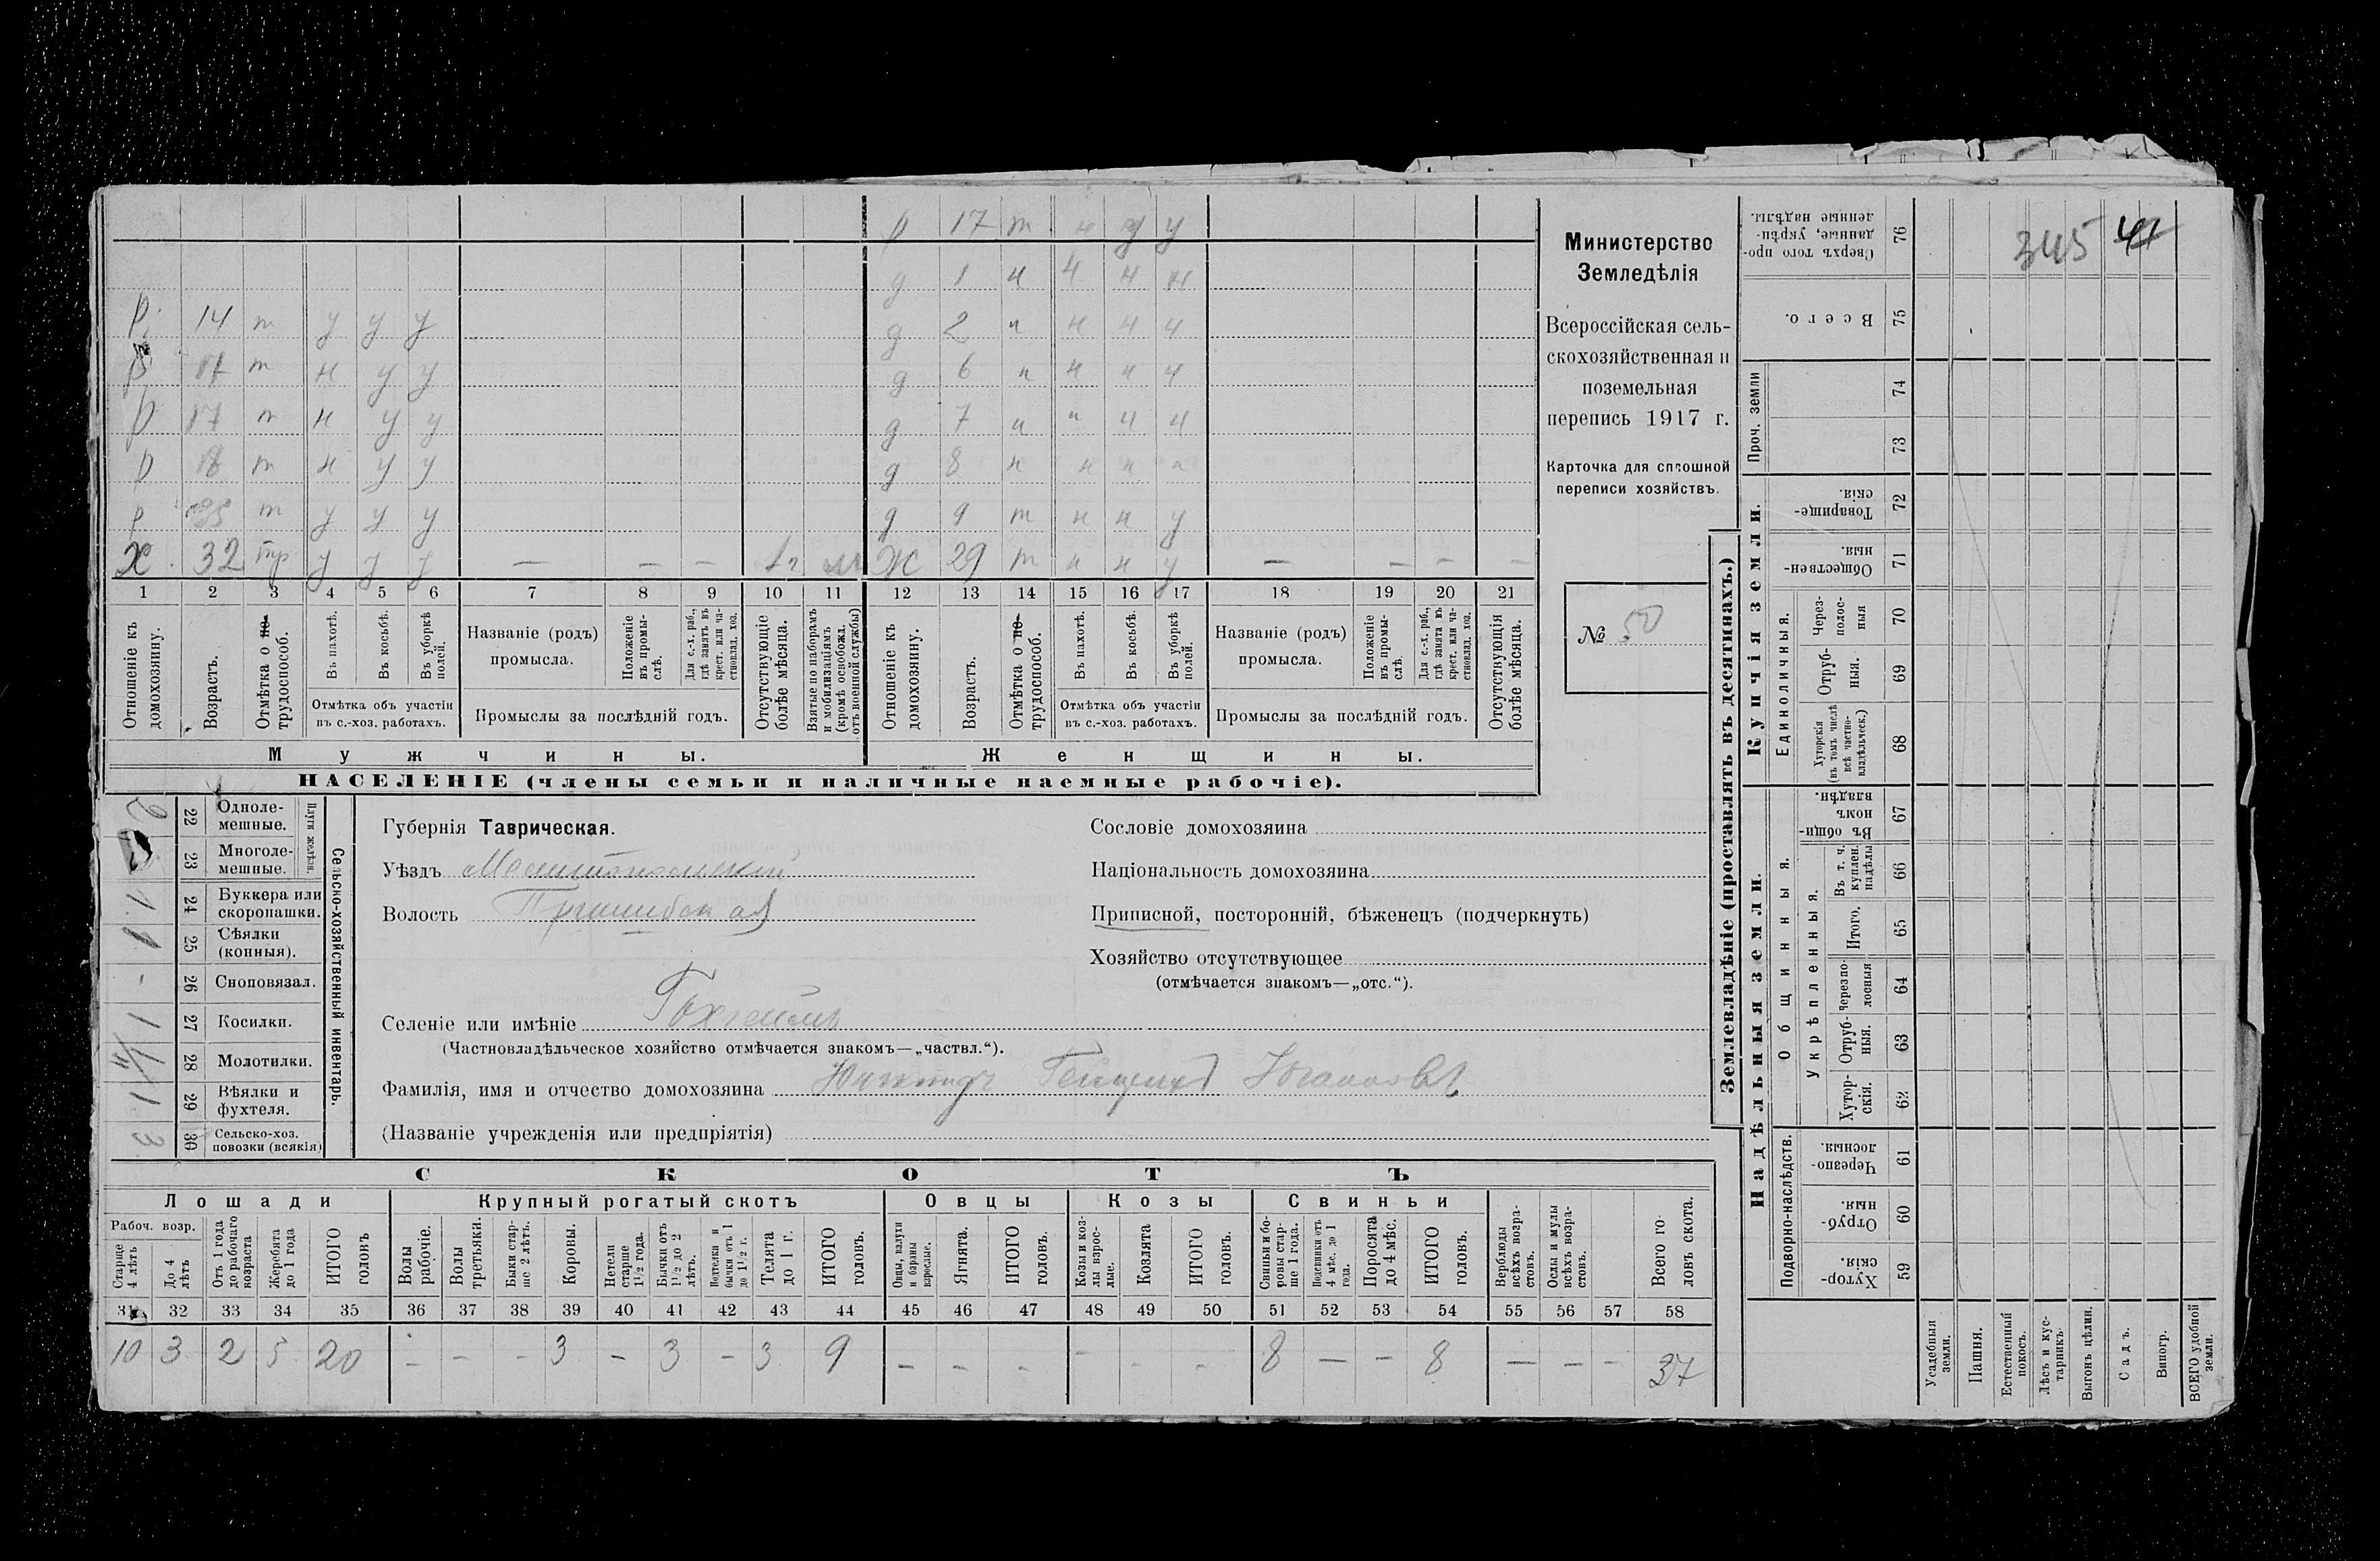 р 17 т н у у
д 1 н н н н
р 14 т у у у д 2 н н н н
р 17 т н у у д 6 н н н н
р 17 т н у у д 7 н н н н
р 18 т н у у д 8 н н н н
р т у у у д 9 т н н у
Х 32 у у у — — — 1 г Ж 29 т н н у — — — —
1 2 3 4 5 6 7 8 9 10 11 12 13 14 15 16 17 18 19 20 21
Отношеніе къ домохозяину.
Возрастъ.
Отмѣтка о не-трудоспособ.
Въ пахотѣ.
Въ косьбѣ.
Въ уборкѣ полей.
Отмѣтка объ участіи въ с.-хоз. работахъ.
Названіе (родъ) промысла.
Положеніе въ промыслѣ.
Для с.-х. раб., гдѣ занятъ въ крест. или частновлад. хоз.
Промыслы за послѣдній годъ.
Отсутствующіе болѣе мѣсяца.
Взятые по наборамъ и мобилизаціямъ (кромѣ освобожд. отъ военной службы)
Отношеніе къ домохозяину.
Возрастъ.
Отмѣтка о не-трудоспособ.
Въ пахотѣ.
Въ косьбѣ.
Въ уборкѣ полей.
Отмѣтка объ участіи въ с.-хоз. работахъ.
Названіе (родъ) промысла.
Положеніе въ промыслѣ.
Для с.-х. раб., гдѣ занята въ крест. или частновлад. хоз.
Промыслы за послѣдній годъ.
Отсутствующія болѣе мѣсяца.
Мужчины. Женщины.
НАСЕЛЕНІЕ (члены семьи и наличные наемные рабочіе).
Министерство
Земледѣлія
Всероссійская сель-
скохозяйственная и
поземельная
перепись 1917 г.
Карточка для сплошной
переписи хозяйствъ.
№ 50
Сельско-хозяйственный инвентарь.
Плуги желѣзн.
2 22 Одноле-мешные.
23 Многоле-мешные.
1 24 Буккера или скоропашки.
1 25 Сѣялки (конныя).
- 26 Сноповязал.
1 27 Косилки.
28 Молотилки.
1 29 Вѣялки и фухтеля.
3 30 Сельско-хоз. повозки (всякія)
Губернія Таврическая.
Уѣздъ Мелитопольскій
Волость Пришибская
Селеніе или имѣніе Гохгеймъ
(Частновладѣльческое хозяйство отмѣчается знакомъ—„частвл.“).
Фамилія, имя и отчество домохозяина Гейнрихъ Югановъ
(Названіе учрежденія или предпріятія)
Сословіе домохозяина
Національность домохозяина
Приписной, посторонній, бѣженецъ (подчеркнуть)
Хозяйство отсутствующее
(отмѣчается знакомъ—„отс.“).
СКОТЪ
Лошади Крупный рогатый скотъ Овцы Козы Свиньи
Рабоч. возр.
Старше 4 лѣтъ
До 4 лѣтъ
Отъ 1 года до рабочаго возраста
Жеребята до 1 года
ИТОГО головъ
Волы рабочіе.
Волы третьяки.
Быки старше 2 лѣтъ.
Коровы.
Нетели старше 1½ года.
Бычки отъ 1½ до 2 лѣтъ.
Нетелки и бычки отъ 1 до 1½ г.
Телята до 1 г.
ИТОГО головъ.
Овцы, валухи и бараны взрослые.
Ягнята.
ИТОГО головъ.
Козы и козлы взрослые.
Козлята
ИТОГО головъ.
Свиньи и боровы старше 1 года.
Подсвинки отъ 4 мѣс. до 1 года.
Поросята до 4 мѣс.
ИТОГО головъ.
Верблюды всѣхъ возрастовъ.
Ослы и мулы всѣхъ возрастовъ.
Всего головъ скота.
31 32 33 34 35 36 37 38 39 40 41 42 43 44 45 46 47 48 49 50 51 52 53 54 55 56 57 58
10 3 2 5 20 - - - 3 - 3 - 3 9 - - - - - - 8 - - 8 - - - 37
Землевладѣніе (проставлять въ десятинахъ.)
Купчія земли.
Надѣльныя земли.
Сверхъ того проданные, укрѣпленные надѣлы. 76
345 41
Всего. 75
Проч. земли 74
73
Товарищескія. 72
Общественныя. 71
Единоличныя.
Черезполосныя 70
Отрубныя. 69
Хуторскія (въ томъ числѣ всѣ частновладѣльческ.) 68
Общинныя.
Въ общинномъ владѣн. 67
Укрѣпленныя.
Въ т. ч. куплен. надѣлы 66
Итого. 65
Черезполосныя 64
Отрубныя. 63
Хуторскія. 62
Подворно-наслѣдств.
Черезполосныя. 61
Отрубныя. 60
Хуторскія. 59
Усадебныя земли.
Пашня.
Естественный покосъ.
Лѣсъ и кустарникъ.
Выгонъ цѣлин.
Садъ.
Виногр.
ВСЕГО удобной земли.